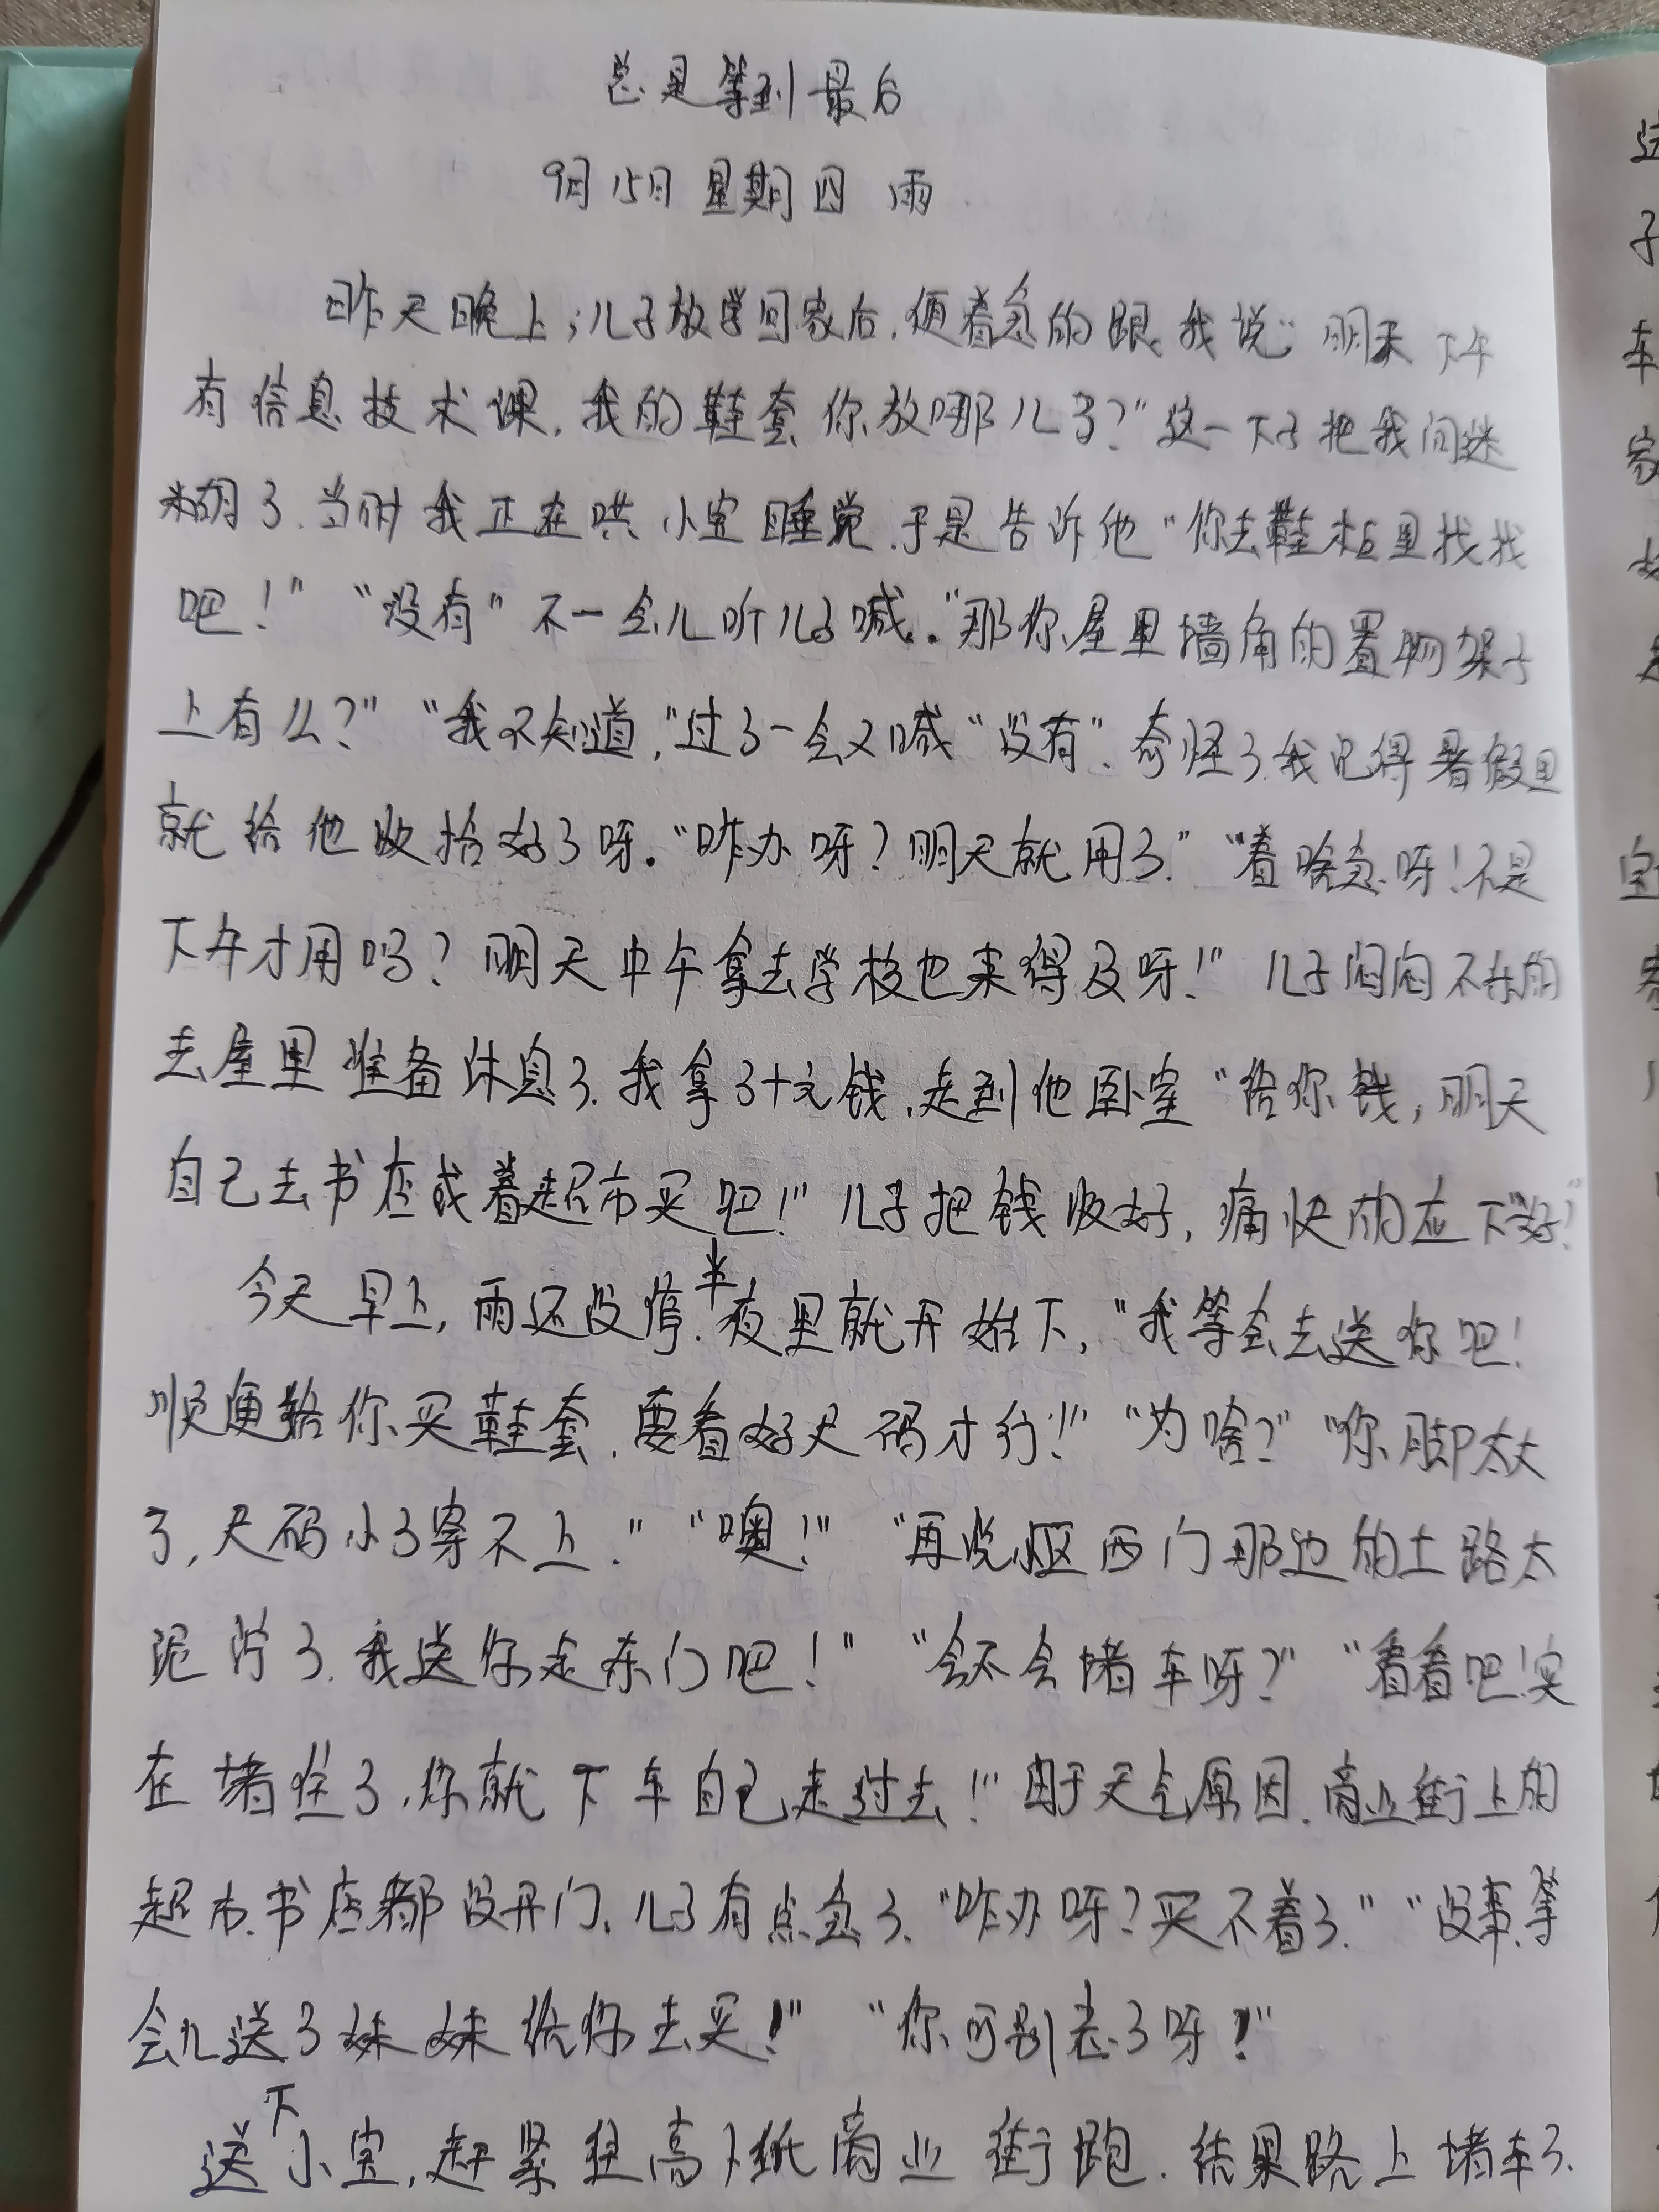 总是等到最后
9月15日 星期四 雨
昨天晚上,儿子放学回家后,便着急的跟我说:"明天下午
有信息技术课,我的鞋套你放哪儿了?"这一下子把我问迷
糊了.当时我正在哄小宝睡觉.于是告诉他"你去鞋柜里找找
吧!" "没有"不一会儿听儿子喊."那你屋里墙角的置物架子
上有么?" "我不知道,"过了一会又喊"没有".奇怪了.我记得暑假里
就给他收拾好了呀."咋办呀?明天就用了." "着啥急呀!不是
下午才用吗?明天中午拿去学校也来得及呀!"儿子闷闷不乐的
去屋里准备休息了.我拿了十元钱,走到他卧室"给你钱,明天
自己去书店或着超市买吧!"儿子把钱收好,痛快的应下"好!"
今天早上,雨还没停.半夜里就开始下,"我等会去送你吧!
顺便给你买鞋套,要看好尺码才行!" "为啥?" "你脚太大
了,尺码小了穿不上." "噢!" "再说小区西门那边的土路太
泥泞了.我送你走东门吧!" "会不会堵车呀?" "看看吧!实
在堵住了,你就下车自己走过去!"由于天气原因.商业街上的
超市.书店都没开门.儿子有点急了."咋办呀?买不着了." "没事,等
会儿送了妹妹给你去买!" "你可别忘了呀!"
送下小宝,赶紧往高 纸商业街跑.结果路上堵车了.